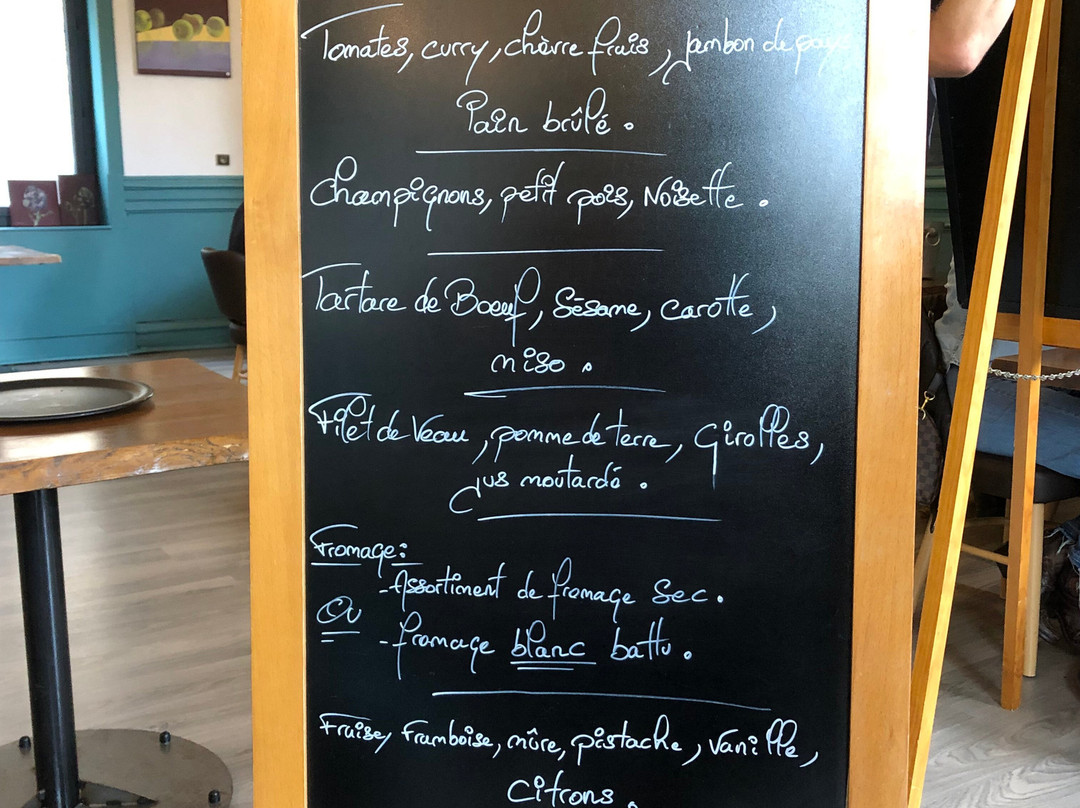 Tomates, curry, chèvre frais, jambon de pays
Pain brûlé.
Champignons, petit pois, Noisette.
Tartare de Boeuf, Sésame, Carotte,
miso.
Filet de Veau, pomme de terre, Girolles,
Jus moutardé.
Fromage:
-Assortiment de fromage Sec.
Ou
-fromage blanc battu.
Fraise, Framboise, mûre, pistache, Vanille,
Citrons.